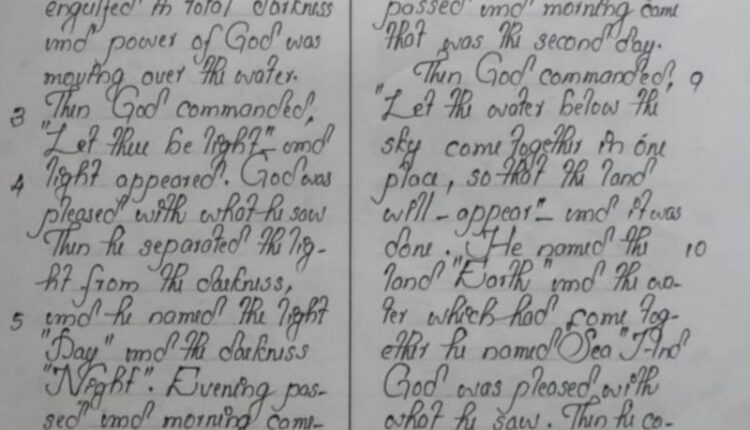 engulfed in total darkness
and power of God was
moving over the water.
3 Then God commanded,
"Let there be light"_ and
4 light appeared. God was
pleased with what he saw
Then he separated the lig-
ht from the darkness,
5 and he named the light
"Day" and the darkness
"Night". Evening pas-
sed and morning came-
passed and morning came
that was the second day.
Then God commanded, 9
"Let the water below the
sky come together in one
place, so that the land
will - appear"_ and it was
done. He named the 10
land "Earth" and the wa-
ter which had come tog-
ether he named Sea" And
God was pleased with
what he saw. Then he co-